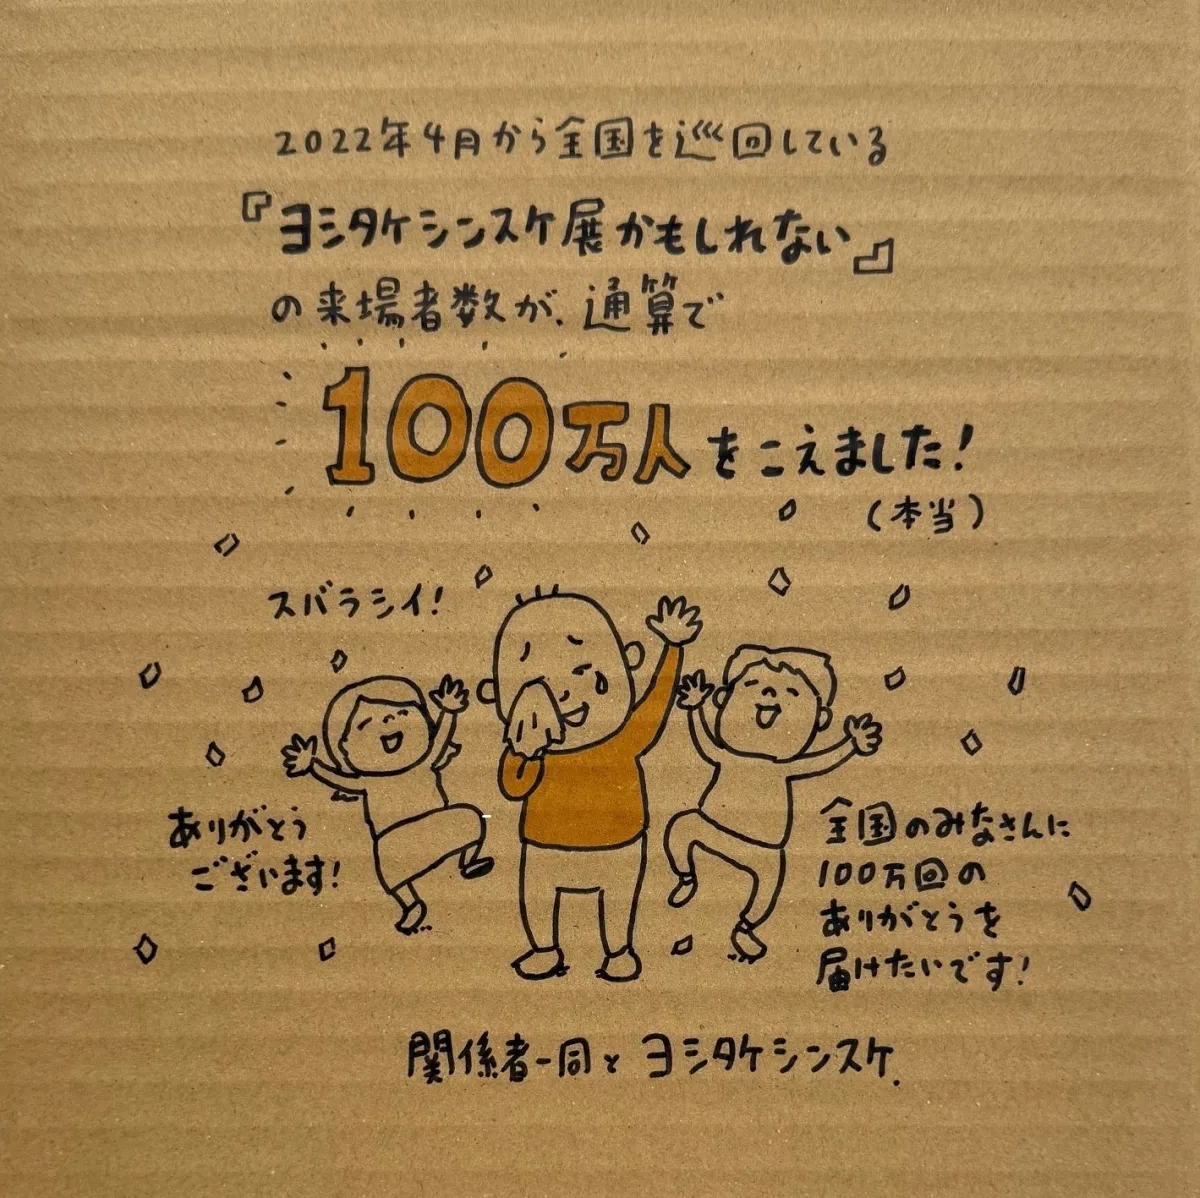 2022年4月から全国を巡回している
『ヨシタケシンスケ展かもしれない』
の来場者数が、通算で
100万人をこえました!
(本当)
スバラシイ!
ありがとう
ございます!
全国のみなさんに
100万回の
ありがとうを
届けたいです!
関係者一同と ヨシタケシンスケ.